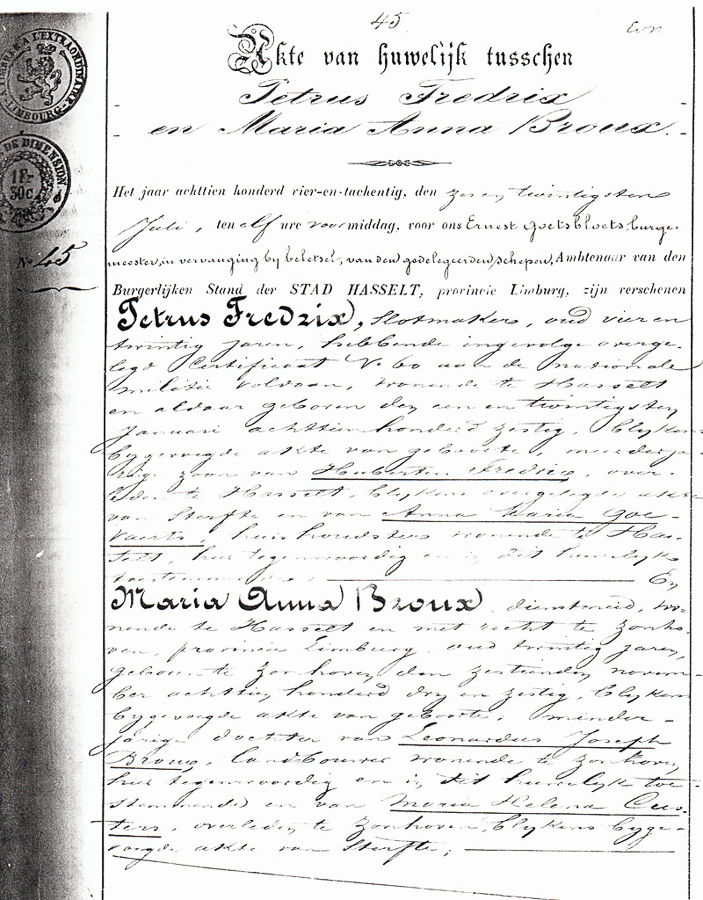 45
Akte van huwelijk tusschen
Petrus Fredrix
en Maria Anna Broux.
TIMBRE A L'EXTRAORDINAIRE
LIMBOURG
DE DIMENSION
1 Fr
30c
No 45
Het jaar achttien honderd vier-en-tachentig, den zes en twintigsten
Juli, ten elf ure voormiddag, voor ons Ernest Goetsbloets, burge-
meester, in vervanging by beletsel, van den gedelegeerden schepen, Ambtenaar van den
Burgerlijken Stand der STAD HASSELT, provincie Limburg, zijn verschenen
Petrus Fredrix, slotmaker, oud vier en
twintig jaren, hebbende ingevolge overge-
legd certificaat No 60 aan de nationale
militie voldaan, wonende te Hasselt
en aldaar geboren den een en twintigsten
Januari achttien honderd zestig, blykens
bygevoegde akte van geboorte, meerderja-
rige zoon van Hubertus Fredrix, over-
leden te Hasselt, blykens overgelegde akte
van sterfte en van Anna Maria Goe-
vaerts, huishoudster wonende te Has-
selt, hier tegenwoordig en in dit huwelyk
toestemmende. En
Maria Anna Broux, dienstmeid, wo-
nende te Hasselt en met recht te Zonho-
ven, provincie Limburg, oud twintig jaren,
geboren te Zonhoven den zestienden novem-
ber achttien honderd dry en zestig, blykens
bygevoegde akte van geboorte, minder-
jarige dochter van Leonardus Joseph
Broux, landbouwer wonende te Zonhoven
hier tegenwoordig en in dit huwelyk toe-
stemmende en van Maria Helena Cus-
ters, overleden te Zonhoven, blykens byge-
voegde akte van sterfte;